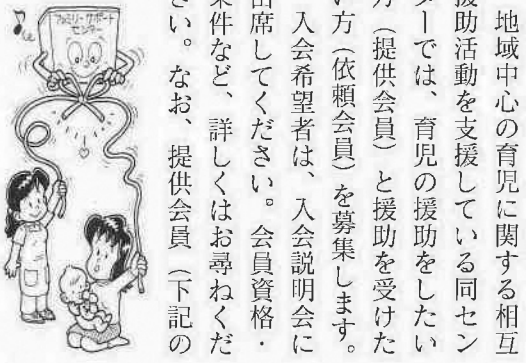 地域中心の育児に関する相互
援助活動を支援している同セン
ターでは、育児の援助をしたい
方（提供会員）と援助を受けた
い方（依頼会員）を募集します。
入会希望者は、入会説明会に
出席してください。会員資格・
条件など、詳しくはお尋ねくだ
さい。なお、提供会員（下記の
ファミリーサポート
センター